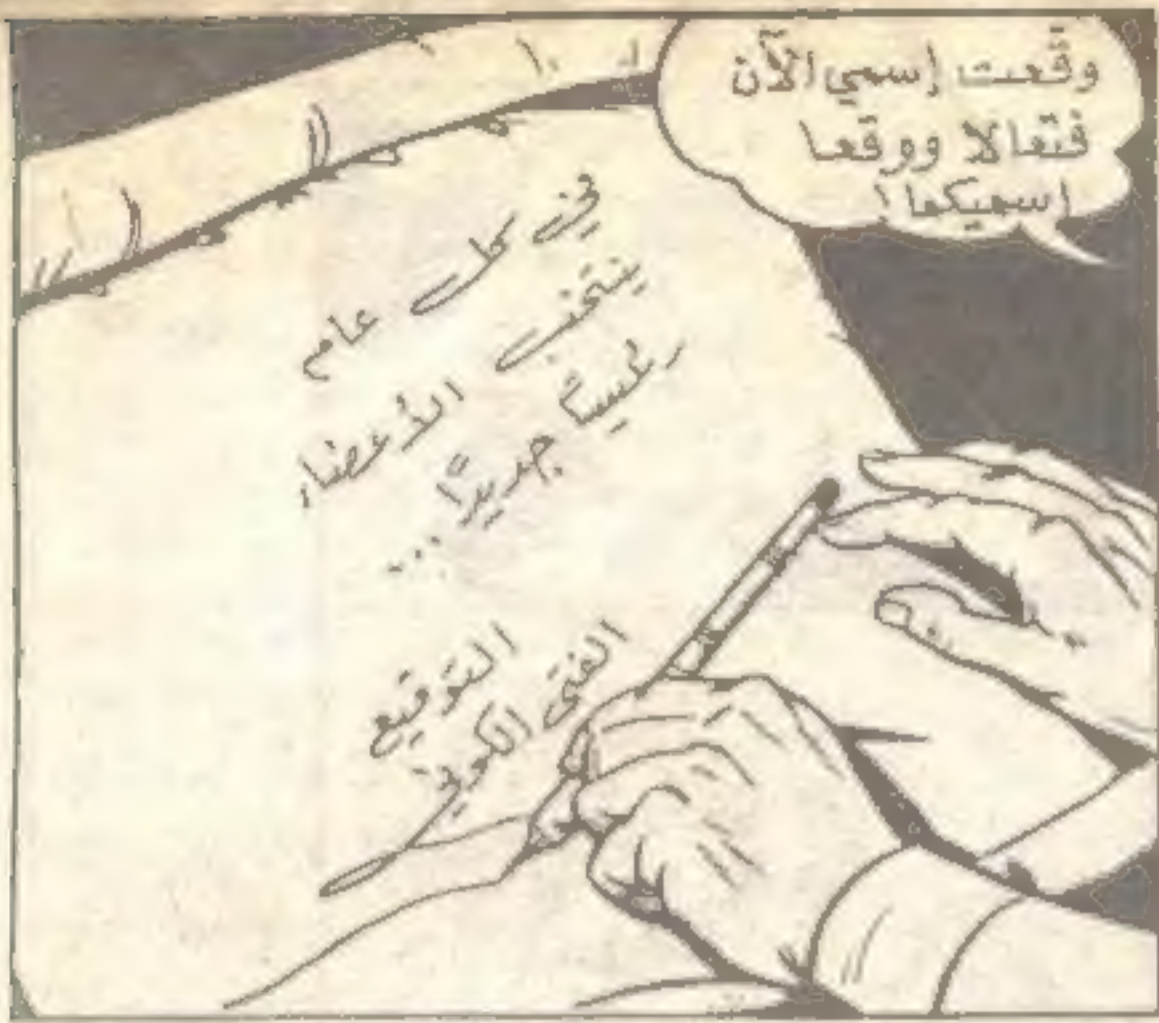 وقعت إسمي الآن
فتعالا ووقعا
إسميكما!
في كل عام
ينتخب الأعضاء
رئيسًا جديدًا...
التوقيع
الفتى الكوني